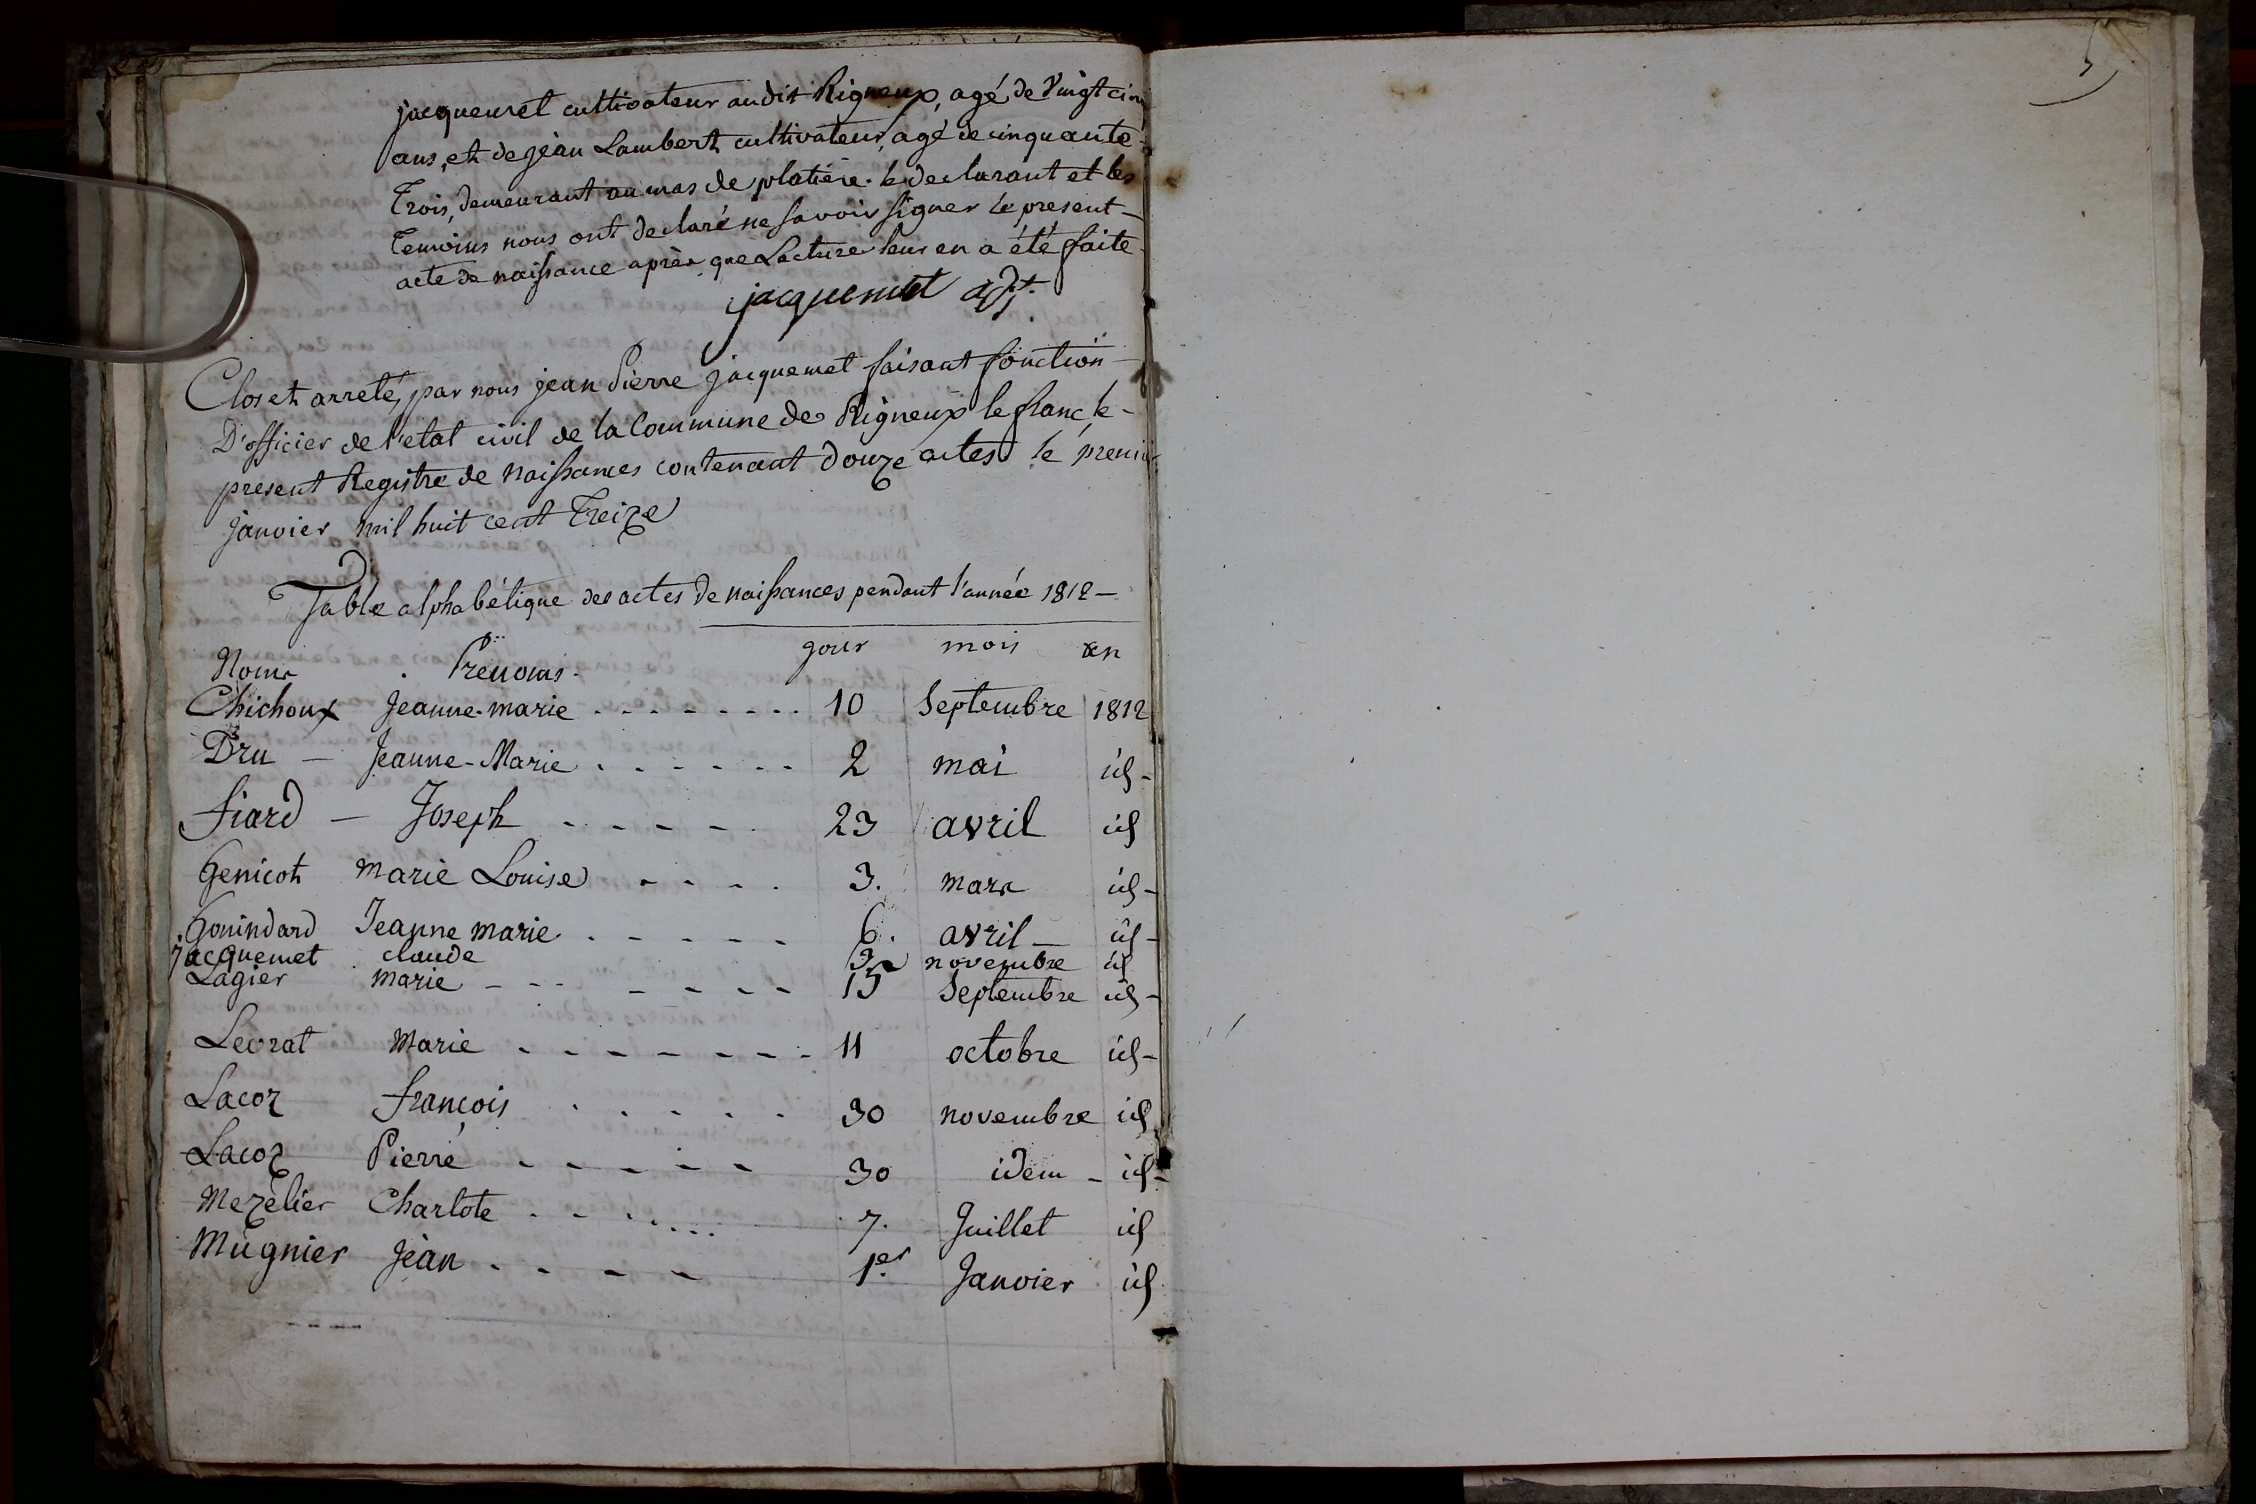 5
jacquemet cultivateur audit Rigneux, agé de Vingt cinq
ans, et de jean Lambert cultivateur, agé de cinquante
Trois, demeurant au mas de platière. le declarant et les
Temoins nous ont declaré ne savoir signer le present
acte de naissance après que Lecture leur en a été faite
jacquemet adjt.
Clos et arreté, par nous jean Pierre jacquemet faisant fonction
D'officier de l'etat civil de la Commune de Rigneux le franc, le
present Registre de Naissances contenant Douze actes le premier
janvier mil huit cent Treize
Table alphabétique des actes de naissances pendant l'année 1812 —
Noms Prenoms jour mois an
Chichoux Jeanne-marie 10 Septembre 1812
Dru — Jeanne-Marie 2 mai id -
fiard — Joseph 23 avril id
Genicot Marie Louise 3. mars id -
Gouindard Jeanne marie 6. avril — id -
jacquemet claude 3 novembre id
Lagier marie 15 Septembre id -
Levrat Marie 11 octobre id -
Lacoz françois 30 novembre id
Lacoz Pierre 30 idem - id -
Mezelier Charlote 7. Juillet id
Mugnier Jean 1er Janvier id